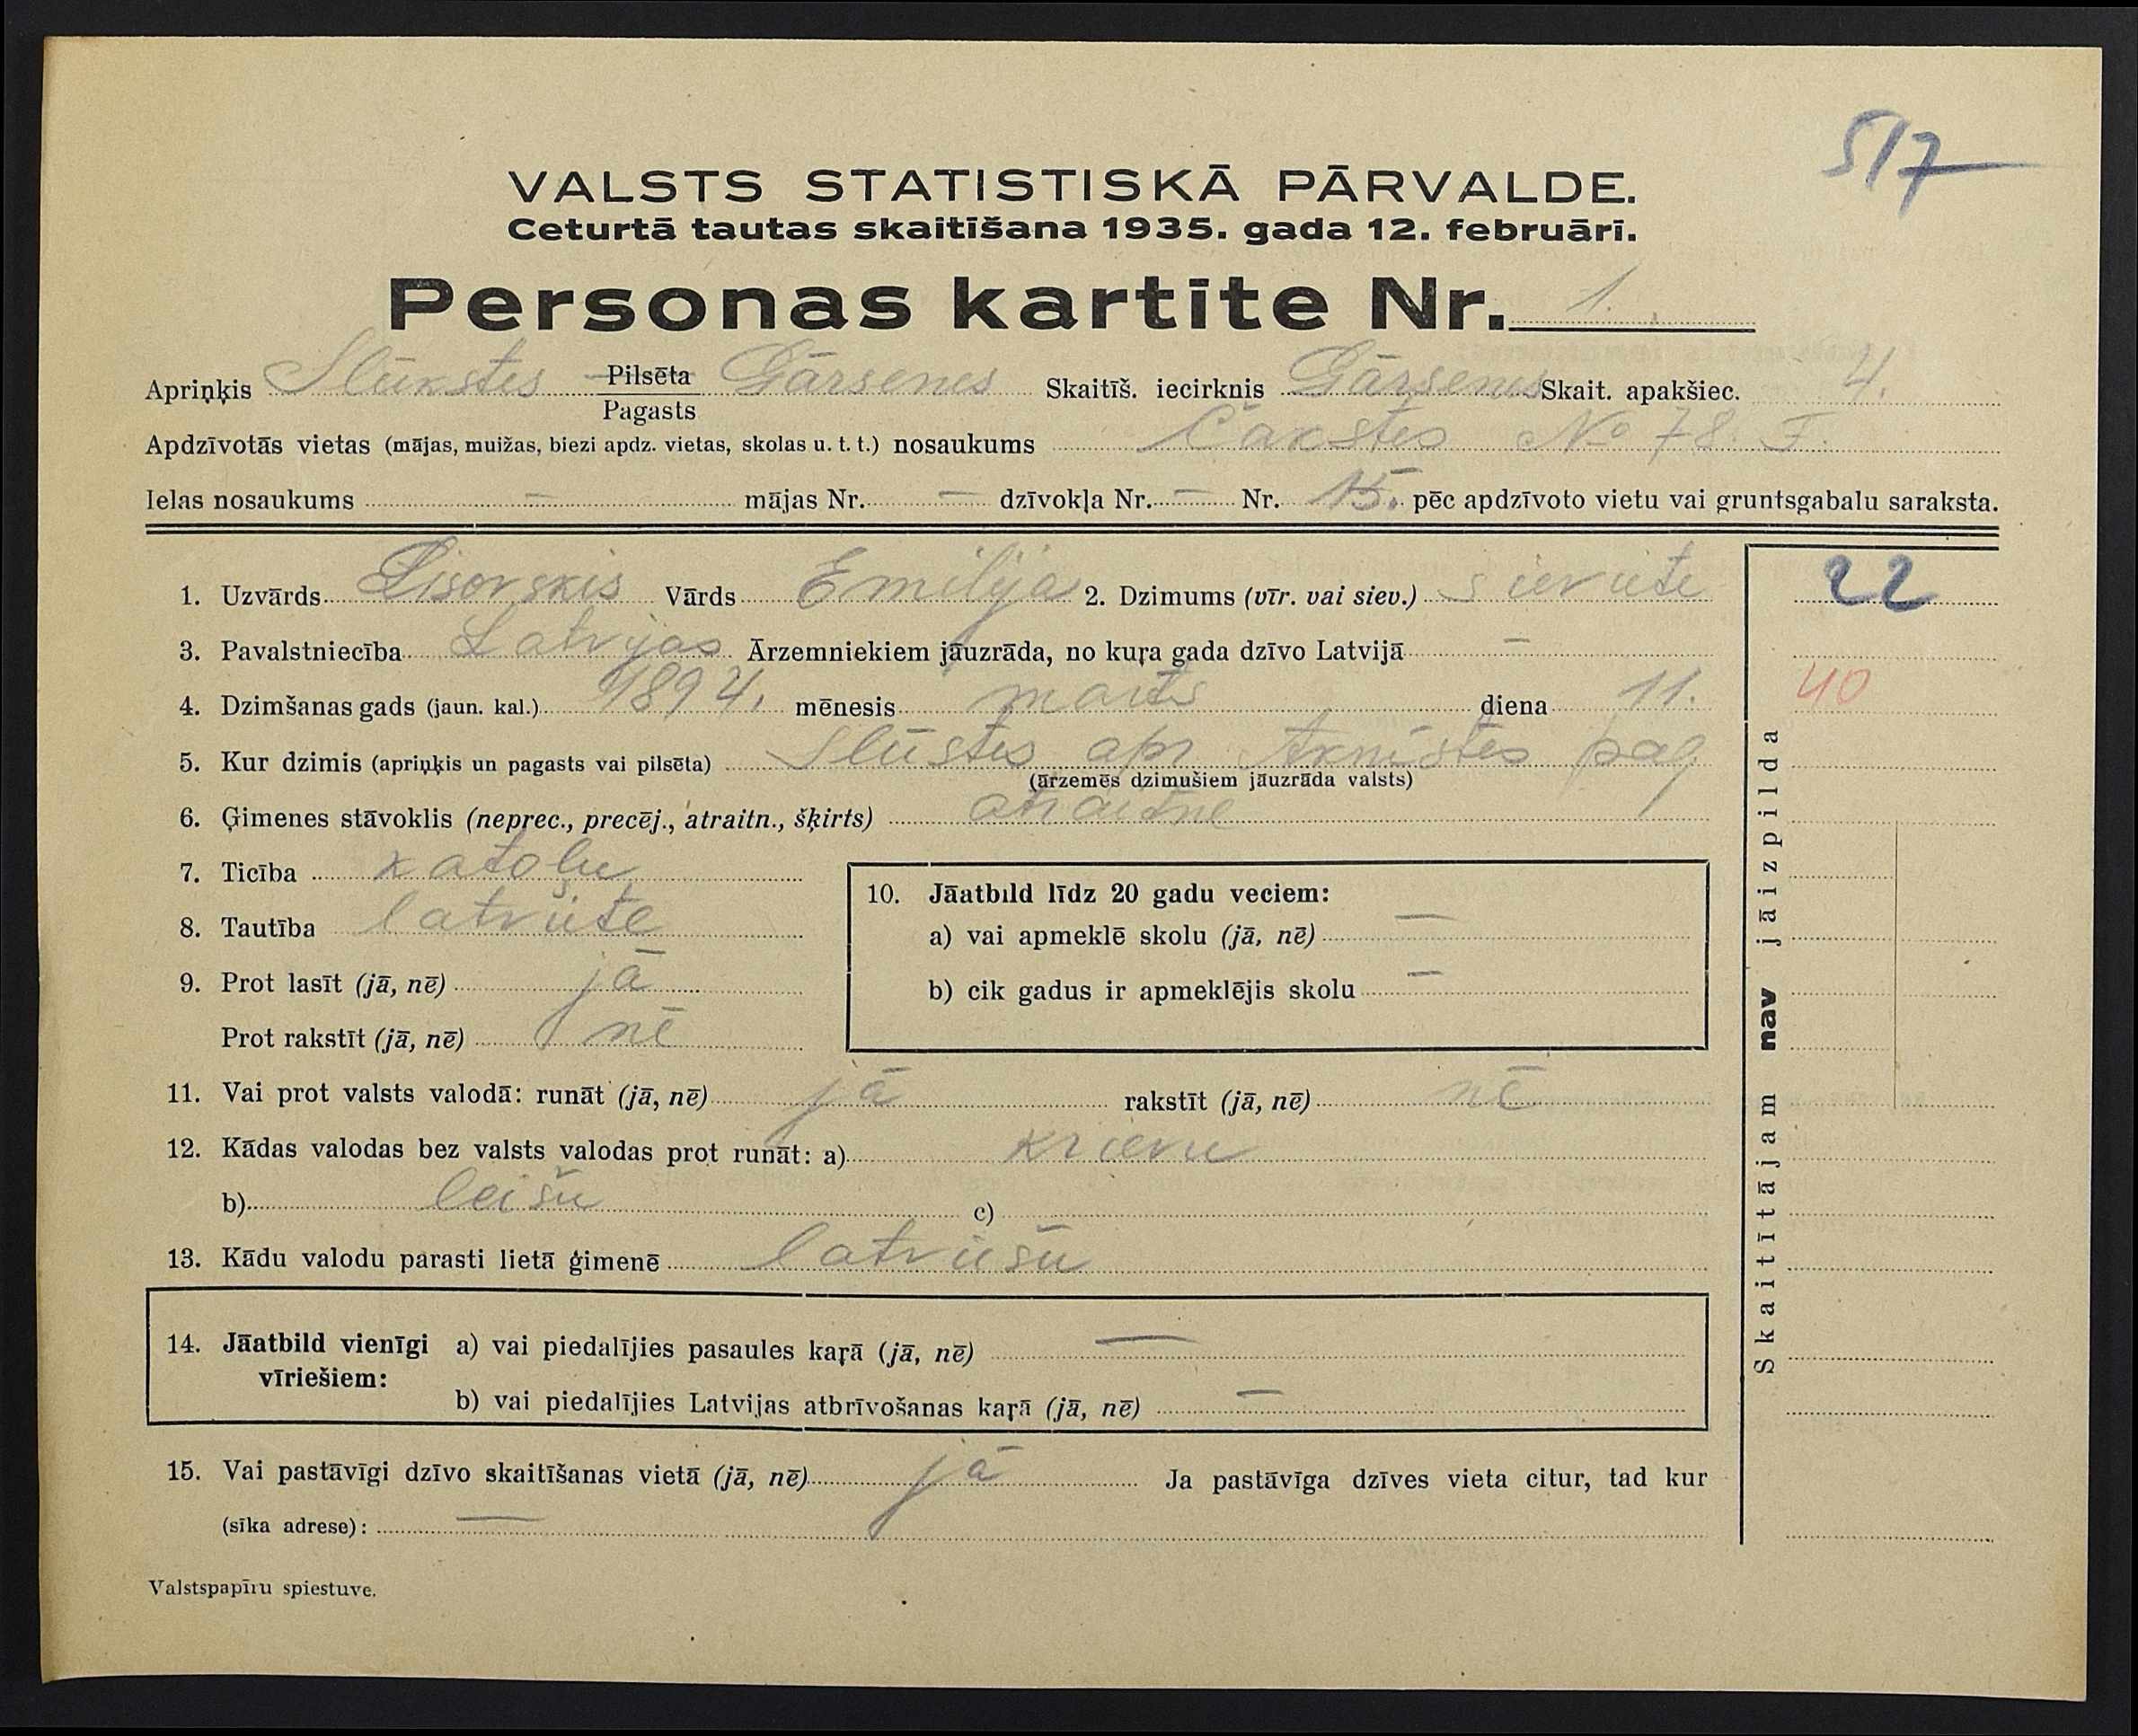 517
VALSTS STATISTISKĀ PĀRVALDE.
Ceturtā tautas skaitīšana 1935. gada 12. februārī.
Personas kartīte Nr. 1.
Apriņķis Slūkstes Pilsēta Gārsenes Skaitīš. iecirknis Gārsenes Skait. apakšiec. 4.
Pagasts
Apdzīvotās vietas (mājas, muižas, biezi apdz. vietas, skolas u. t. t.) nosaukums Čakstes No 78. F.
Ielas nosaukums — mājas Nr. — dzīvokļa Nr. — Nr. 15. pēc apdzīvoto vietu vai gruntsgabalu saraksta.
1. Uzvārds Lisovskis Vārds Emīlija 2. Dzimums (vīr. vai siev.) sieviete 22
3. Pavalstniecība Latvijas Ārzemniekiem jāuzrāda, no kuŗa gada dzīvo Latvijā —
4. Dzimšanas gads (jaun. kal.) 1894. mēnesis marts diena 11. 40
5. Kur dzimis (apriņķis un pagasts vai pilsēta) Slūstes apr. Aknīstes pag
(ārzemēs dzimušiem jāuzrāda valsts)
6. Ģimenes stāvoklis (neprec., precēj., atraitn., šķirts) atraitne
7. Ticība katoļu
8. Tautība latviete
9. Prot lasīt (jā, nē) jā
Prot rakstīt (jā, nē) nē
10. Jāatbild līdz 20 gadu veciem:
a) vai apmeklē skolu (jā, nē) —
b) cik gadus ir apmeklējis skolu —
11. Vai prot valsts valodā: runāt (jā, nē) jā rakstīt (jā, nē) nē
12. Kādas valodas bez valsts valodas prot runāt: a) krievu
b) leišu c)
13. Kādu valodu parasti lietā ģimenē latviešu
14. Jāatbild vienīgi a) vai piedalījies pasaules kaŗā (jā, nē) —
vīriešiem:
b) vai piedalījies Latvijas atbrīvošanas kaŗā (jā, nē) —
15. Vai pastāvīgi dzīvo skaitīšanas vietā (jā, nē) jā Ja pastāvīga dzīves vieta citur, tad kur
(sīka adrese): —
Skaitītājam nav jāizpilda
Valstspapīru spiestuve.